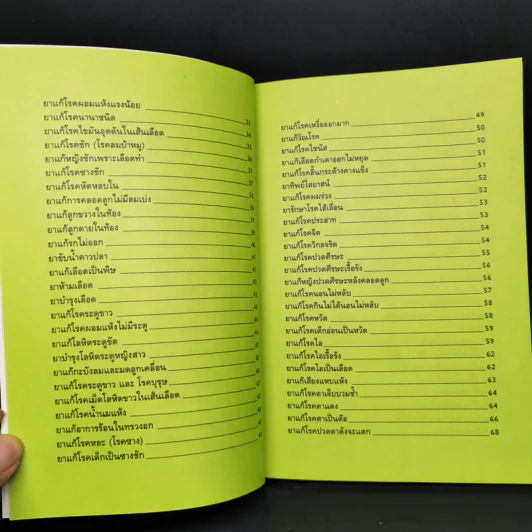 ยาแก้โรคผอมแห้งแรงน้อย
ยาแก้โรคนานาชนิด 33
ยาแก้โรคไขมันอุดตันในเส้นเลือด
ยาแก้โรคชัก (โรคลมบ้าหมู)
ยาแก้หญิงชักเพราะเลือดทำ
ยาแก้โรคซางชัก
ยาแก้โรคหืดหลบใน
ยาแก้การคลอดลูกไม่มีลมเบ่ง
ยาแก้ลูกขวางในท้อง
ยาแก้ลูกตายในท้อง
ยาแก้รกไม่ออก
ยาขับน้ำคาวปลา
ยาแก้เลือดเป็นพิษ
ยาห้ามเลือด
ยาบำรุงเลือด
ยาแก้โรคระดูขาว
ยาแก้โรคผอมแห้งไม่มีระดู
ยาแก้โลหิตระดูขัด
ยาบำรุงโลหิตระดูหญิงสาว
ยาแก้กะบังลมและมดลูกเคลื่อน
ยาแก้โรคระดูขาว และ โรคบุรุษ
ยาแก้โรคเม็ดโลหิตขาวในเส้นเลือด
ยาแก้โรคน้ำนมแห้ง
ยาแก้อาการร้อนในทรวงอก
ยาแก้โรคหละ (โรคซาง)
ยาแก้โรคเด็กเป็นซางชัก
ยาแก้โรคเหงื่อออกมาก 49
ยาแก้วัณโรค 50
ยาแก้โรคไซนัส 50
ยาแก้เลือดกำเดาออกไม่หยุด 51
ยาแก้โรคลิ้นกระด้างคางแข็ง 51
ยาทิพย์โสยาสน์ 52
ยาแก้โรคผมร่วง 52
ยารักษาโรคไส้เลื่อน 53
ยาแก้โรคประสาท 53
ยาแก้โรคจิต 54
ยาแก้โรควิกลจริต 54
ยาแก้โรคปวดศีรษะ 55
ยาแก้โรคปวดศีรษะเรื้อรัง 55
ยาแก้หญิงปวดศีรษะหลังคลอดลูก 56
ยาแก้โรคนอนไม่หลับ 56
ยาแก้โรคกินไม่ได้นอนไม่หลับ 57
ยาแก้โรคหวัด 58
ยาแก้โรคเด็กอ่อนเป็นหวัด 58
ยาแก้โรคไอ 59
ยาแก้โรคไอเรื้อรัง 59
ยาแก้โรคไอเป็นเลือด 62
ยาแก้เสียงแหบแห้ง 62
ยาแก้โรคตาเจ็บบวมช้ำ 63
ยาแก้โรคตาแดง 64
ยาแก้โรคตาเป็นต้อ 64
ยาแก้โรคปวดตาดังจะแตก 66
68